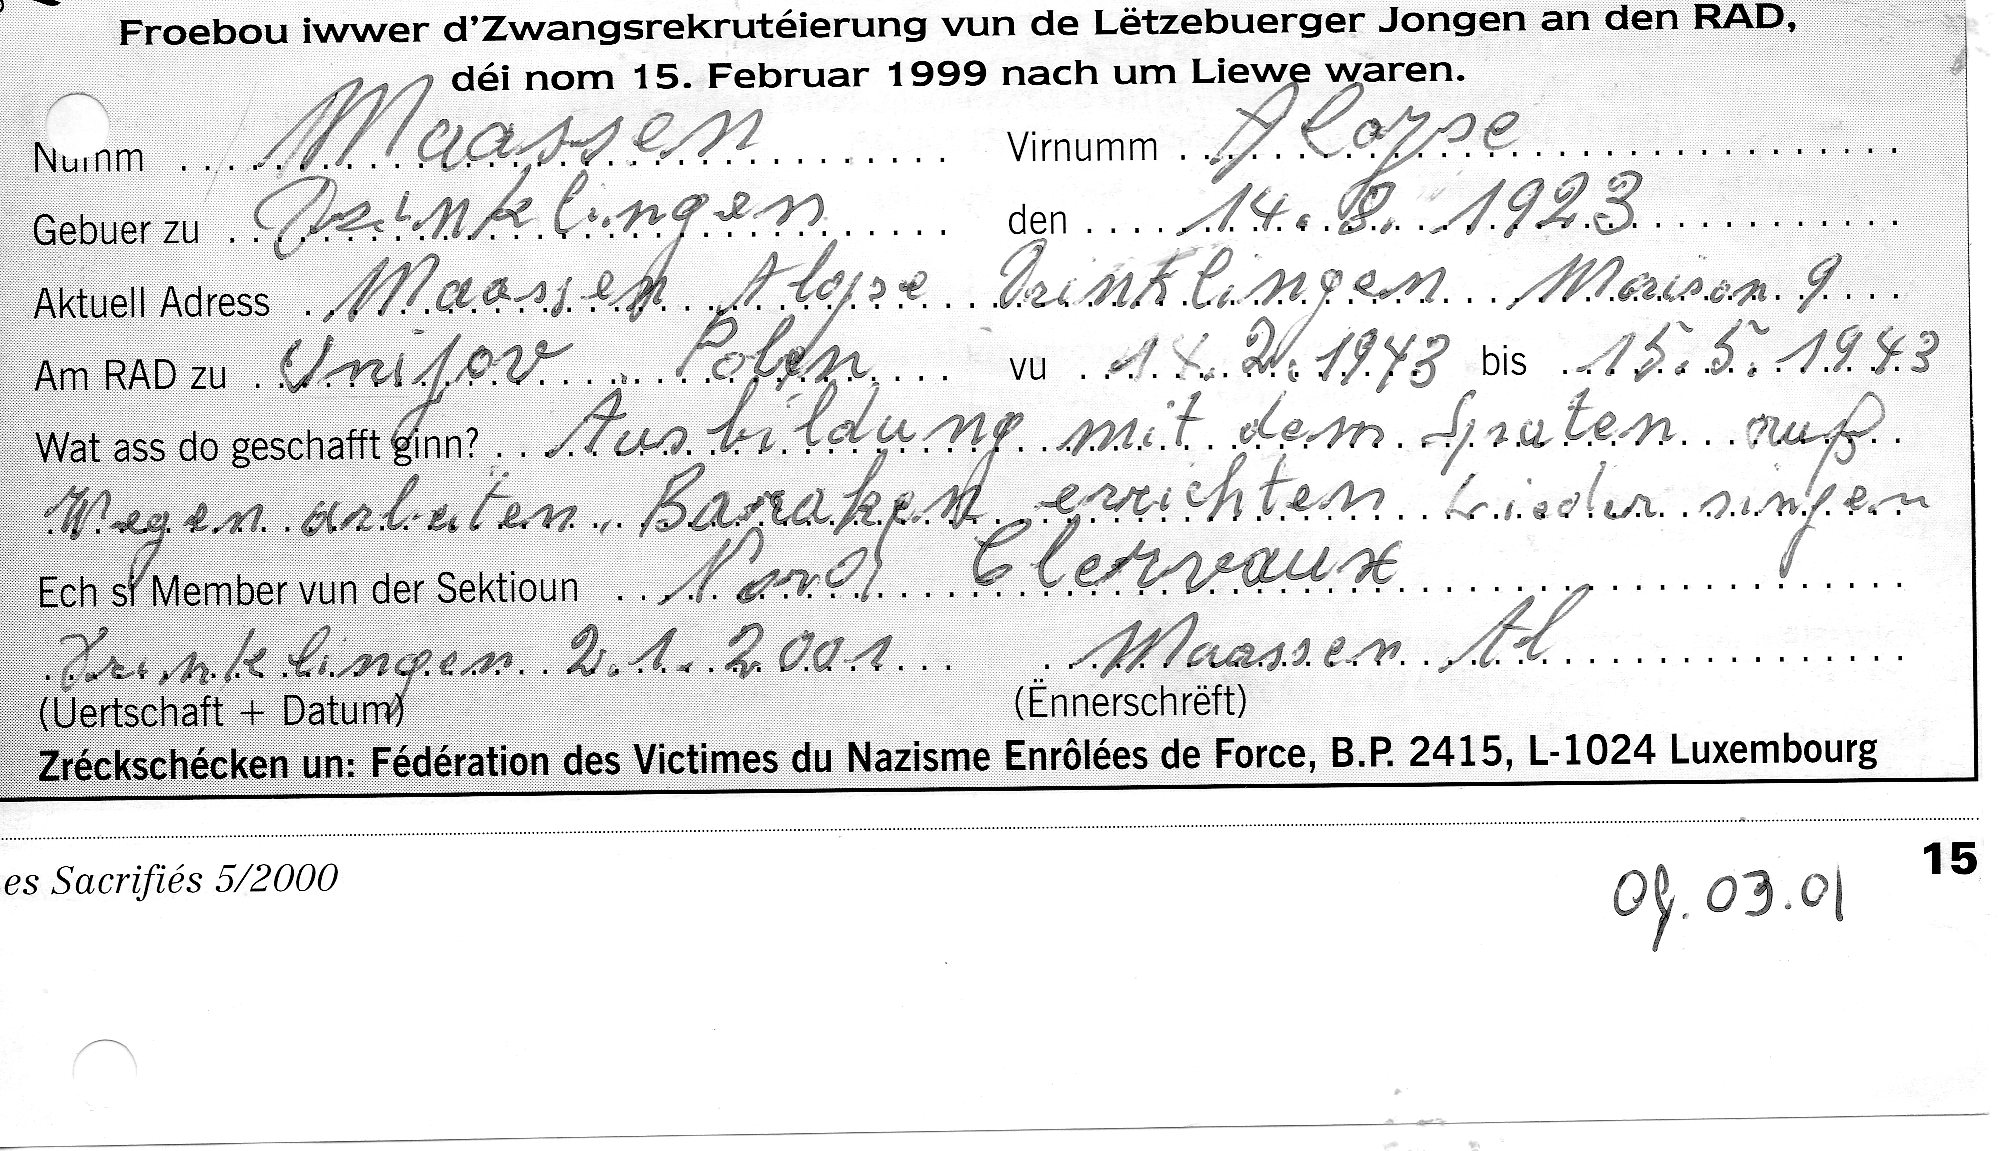 Froebou iwwer d'Zwangsrekrutéierung vun de Lëtzebuerger Jongen an den RAD,
déi nom 15. Februar 1999 nach um Liewe waren.
Numm Maassen Virnumm Aloyse
Gebuer zu Drinklingen den 14. 8. 1923
Aktuell Adress Maassen Aloyse Drinklingen Maison 9
Am RAD zu Unijov Polen vu 14.2.1943 bis 15.5.1943
Wat ass do geschafft ginn? Ausbildung mit dem Spaten auf
Wegen arbeiten, Baraken errichten Lieder singen
Ech si Member vun der Sektioun Nord Clervaux
Drinklingen 2.1.2001 Maassen Al
(Uertschaft + Datum) (Ënnerschrëft)
Zréckschécken un: Fédération des Victimes du Nazisme Enrôlées de Force, B.P. 2415, L-1024 Luxembourg
es Sacrifiés 5/2000 15
09.03.01